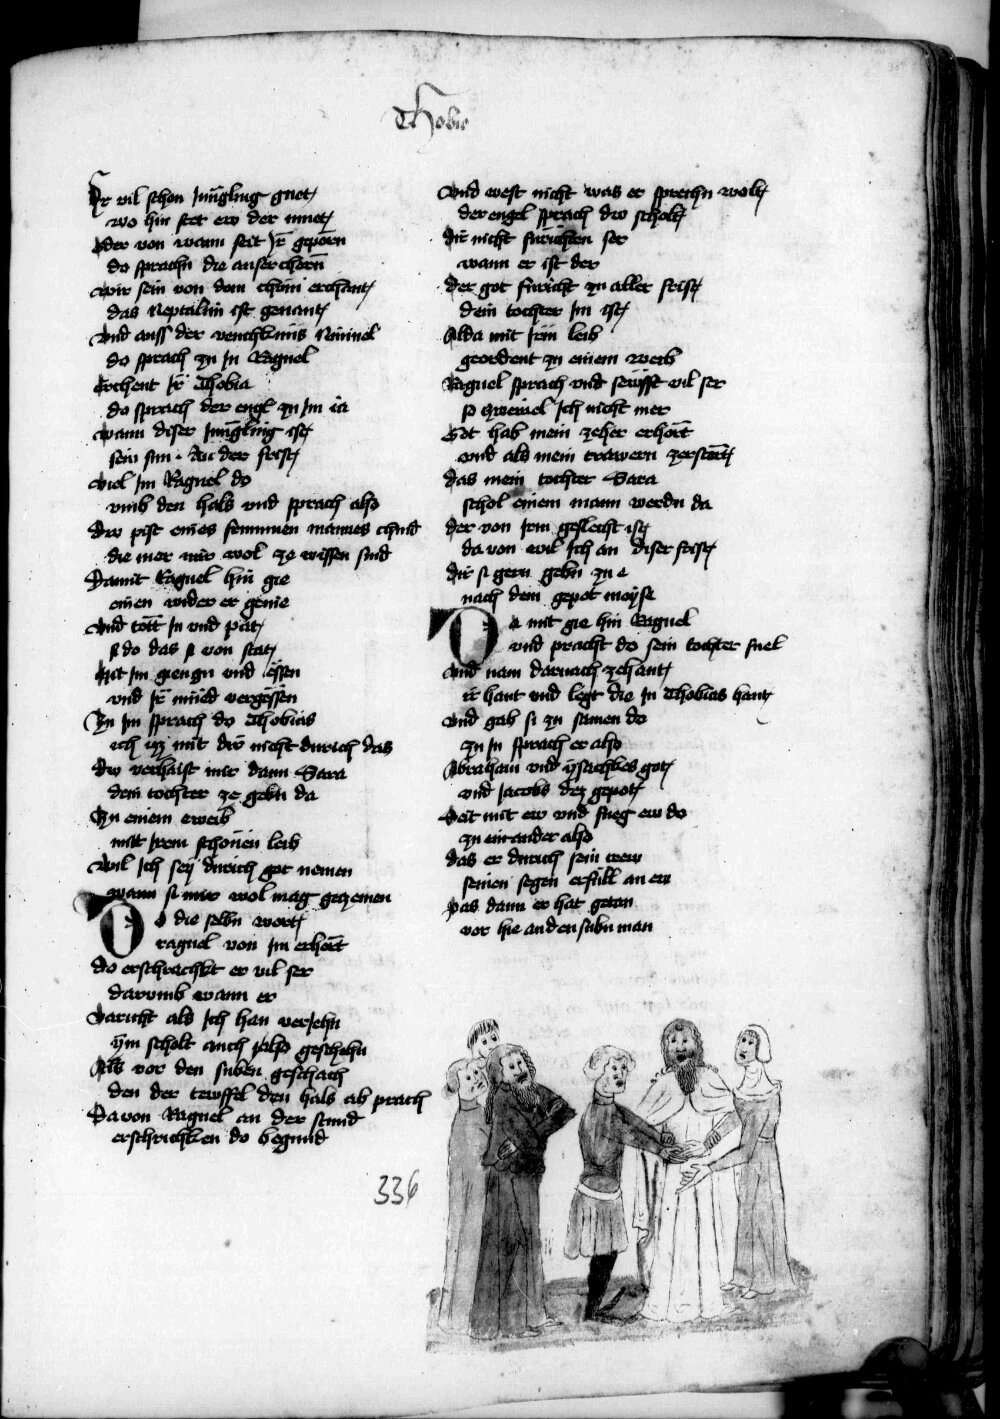 Thobie
Ir vil schon Jungling guet
wo hin stet ew der muet
Oder von wann seit Ir geporn
do sprachn die auserchorn
wir sein von dem chuni erchant
das Neptalim ist genant
Und auss der venchknüs Niniue
do sprach zu In Raguel
Erchent Ir Thobia
do sprach der engl zu Im ia
wann diser Jungling ist
sein sun. An der frist
viel Im Raguel do
umb den hals und sprach also
Dw pist eines frummen mannes chind
die mer mir wol ze wissen sind
Damit Raguel hin gie
einen wider er
Und tott In und pat
si do das si von stat
Mit Im giengn und Essen
und Ir müed vergessen
Zu Im sprach do Thobias
ich izz mit dir nicht durich das
dw verhaist mir dann Sara
dein tochter ze gebn da
Zu einem eweib
mitt Irem schonen leib
wil Ich sey durich got nemen
wann si mir wol mag gezemen
Do die selbn wort
raguel von Im erhort
do erschrachkt er vil ser
darumb wann er
Varicht als Ich han verJehn
ym scholt auch also geschehn
Als vor den siben geschach
den der tewffel den hals ab prach
Davon Raguel an der stund
erschrichken do begund
336
Und west nicht was er sprechn wolt
der engel sprach dw scholt
dir nicht furichten ser
wann er ist der
der got furicht zu aller frist
dein tochter Im ist
Alda mit Irm leib
geordent zu einem weib
Raguel sprach und sewfft vil ser
so zweiuel Ich nicht mer
Got hab mein zeher erhort
und als mein trawern zerstort
das mein tochter Sara
schol einem mann werdn da
der von Irm geslecht ist
da von wil Ich an diser frist
dir si gern gebn zu e
nach dem gepot moyse
Da mit gie hin Raguel
und pracht do sein tochter snel
Und nam darnach zehant
ir hant und legt die In Thobias hant
und gab si zu samen do
zu In sprach er also
Abraham und ysachkes got
und Jacobs der gepot
Seit mit ew und fueg ew do
zu ein ander also
das er durich sein trew
seinen segen erfull an ew
Das dann er hat getan
vor hie an den sibn man